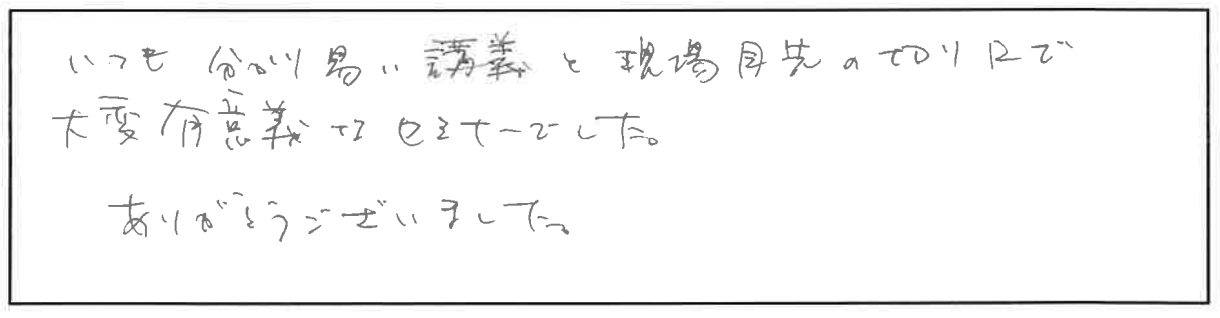 いつも分かり易い講義と現場目先の切り口で
大変有意義なセミナーでした。
ありがとうございました。